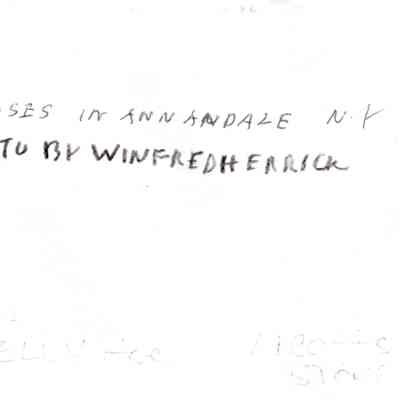 SES IN ANNANDALE N.Y
TO BY WINFREDHERRICK